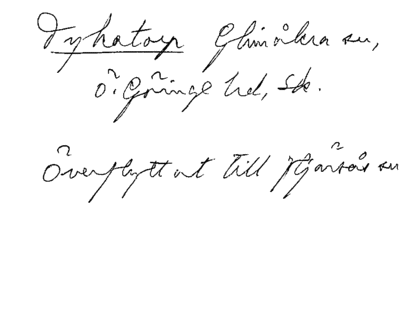 Tykatorp Glimåkra sn,
Ö. Göinge hd, Sk.
Överflyttat till Hjärsås sn